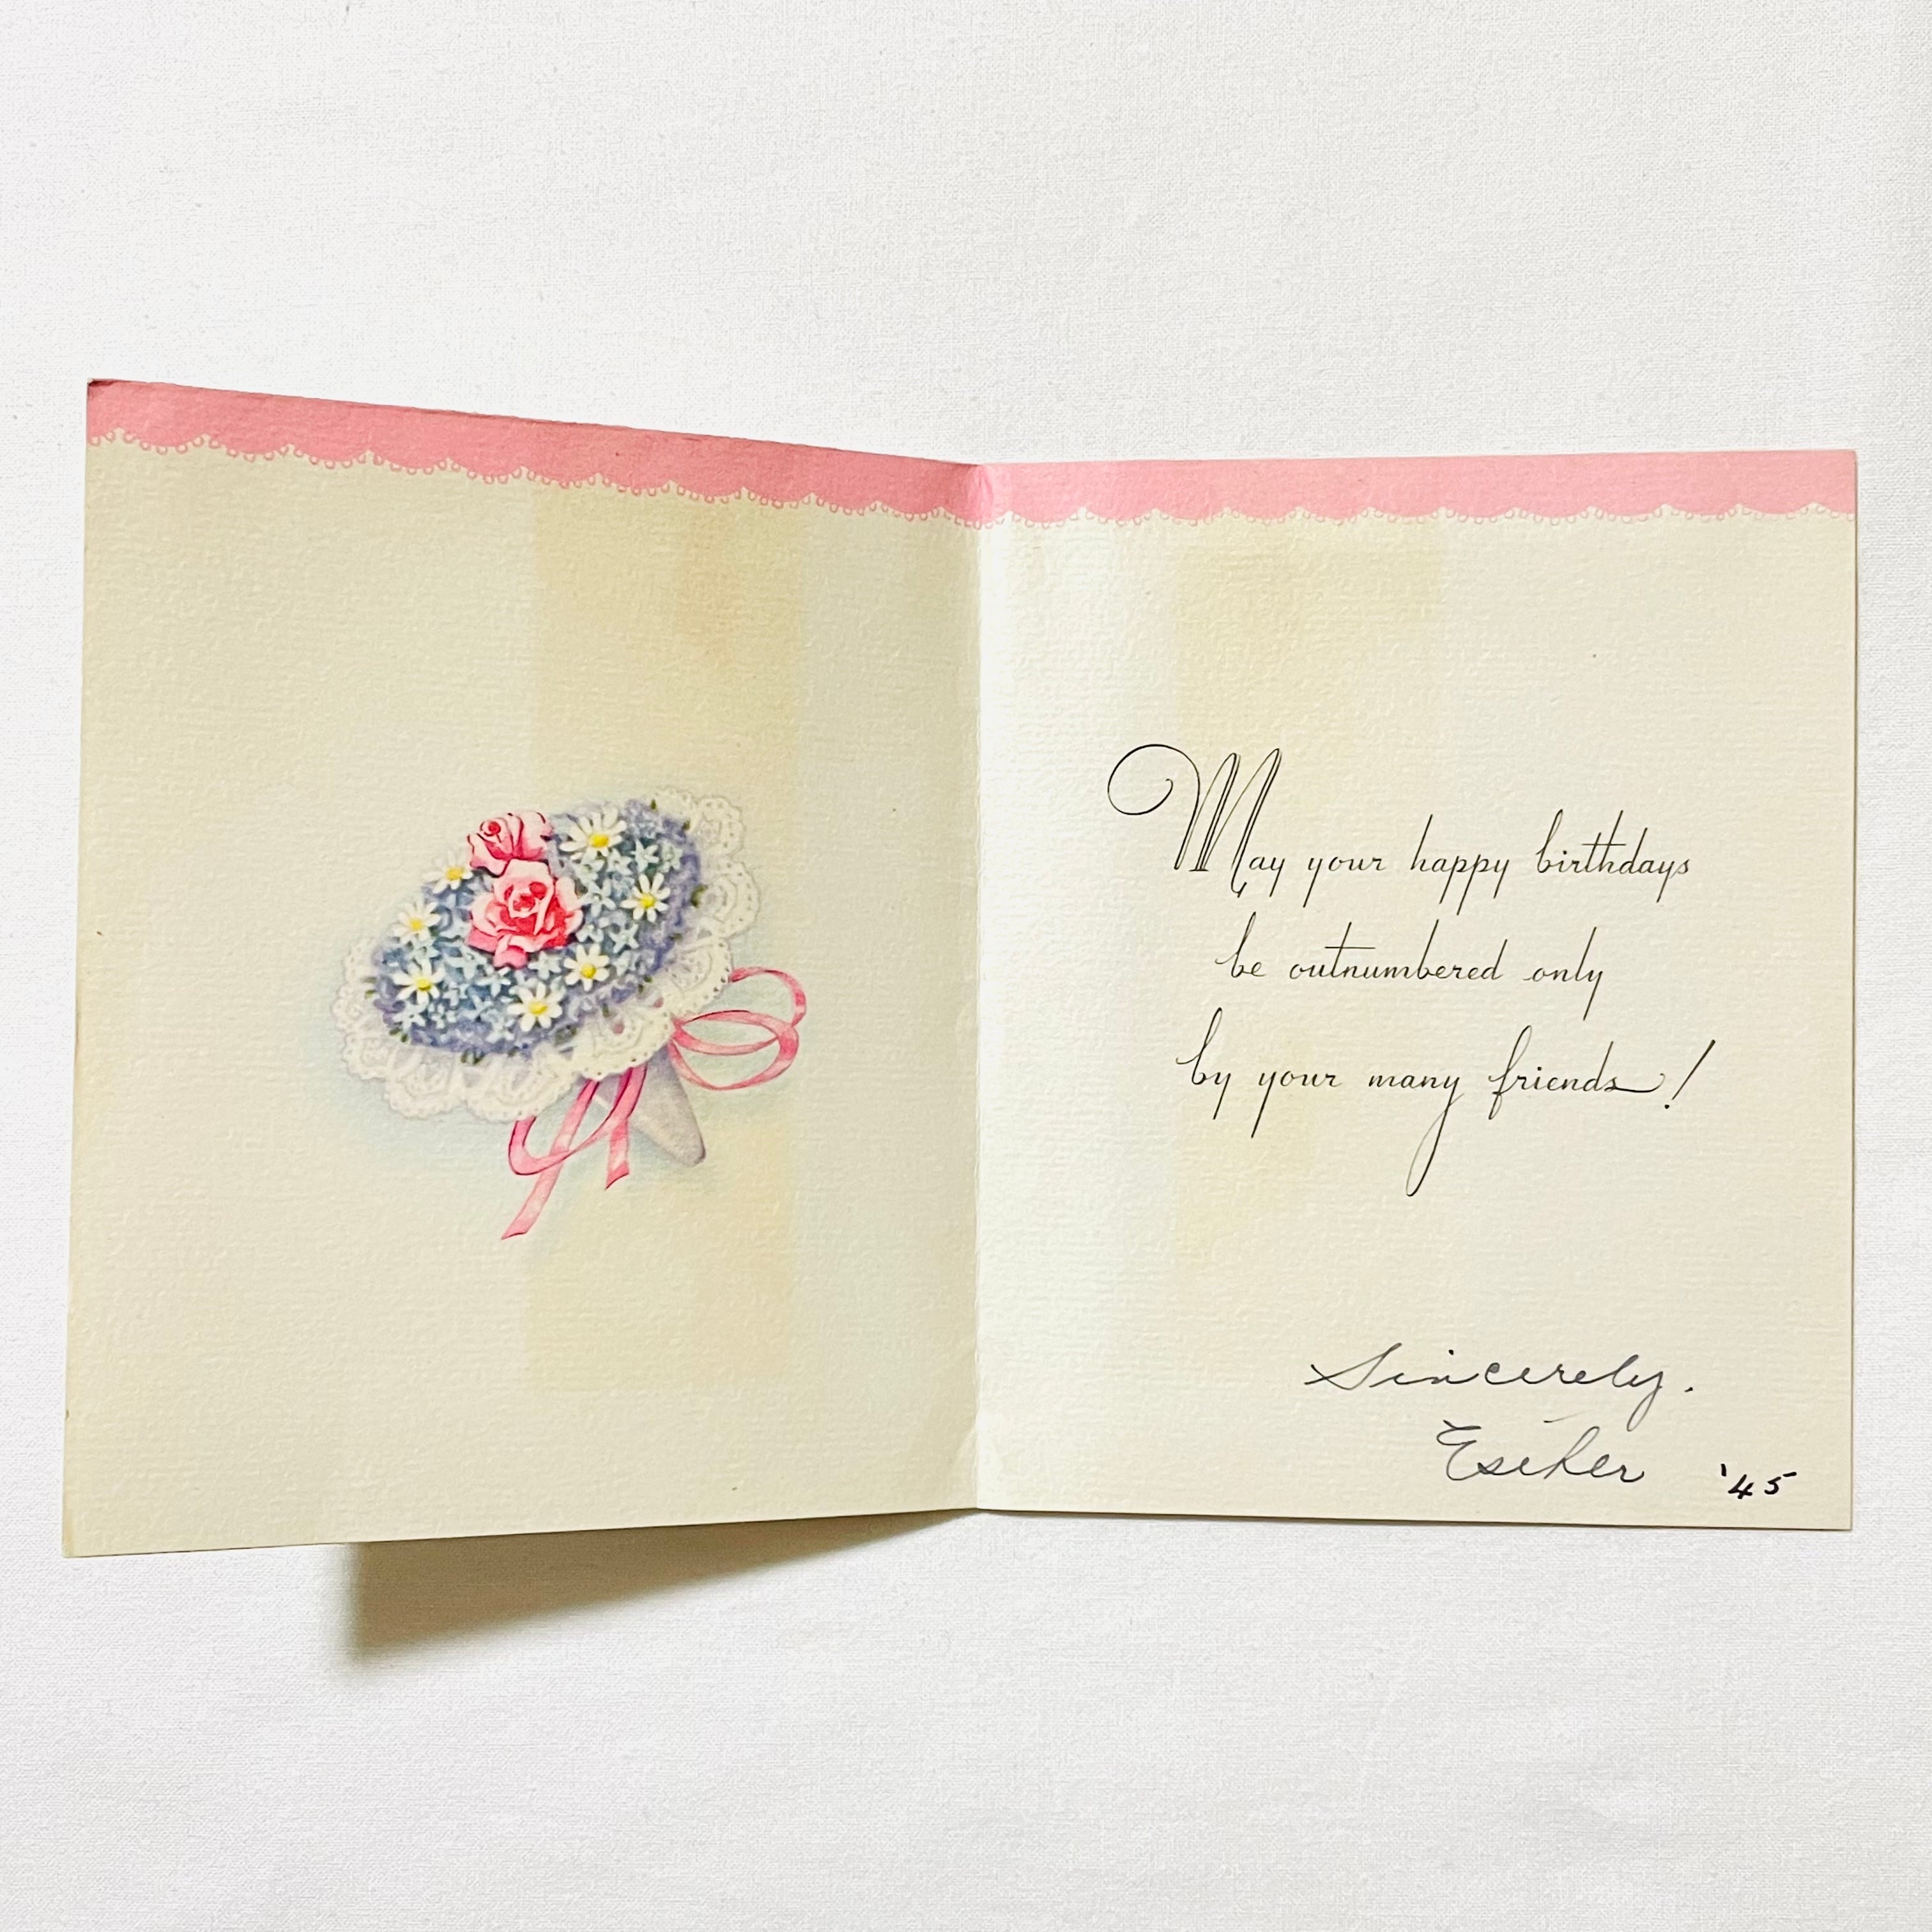 May your happy birthdays
be outnumbered only
by your many friends!
Sincerely.
Esther '45